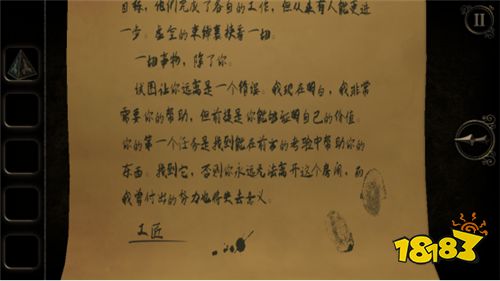 目标，他们完成了各自的工作，但从来有人能更进
一步。虚空的束缚裹挟着一切。
一切事物，除了你。
试图让你远离是一个错误。我现在明白，我非常
需要你的帮助，但前提是你能够证明自己的价值。
你的第一个任务是找到能在前方的考验中帮助你的
东西。找到它，否则你永远无法离开这个房间，而
我曾付出的努力也将失去意义。
工匠
18183